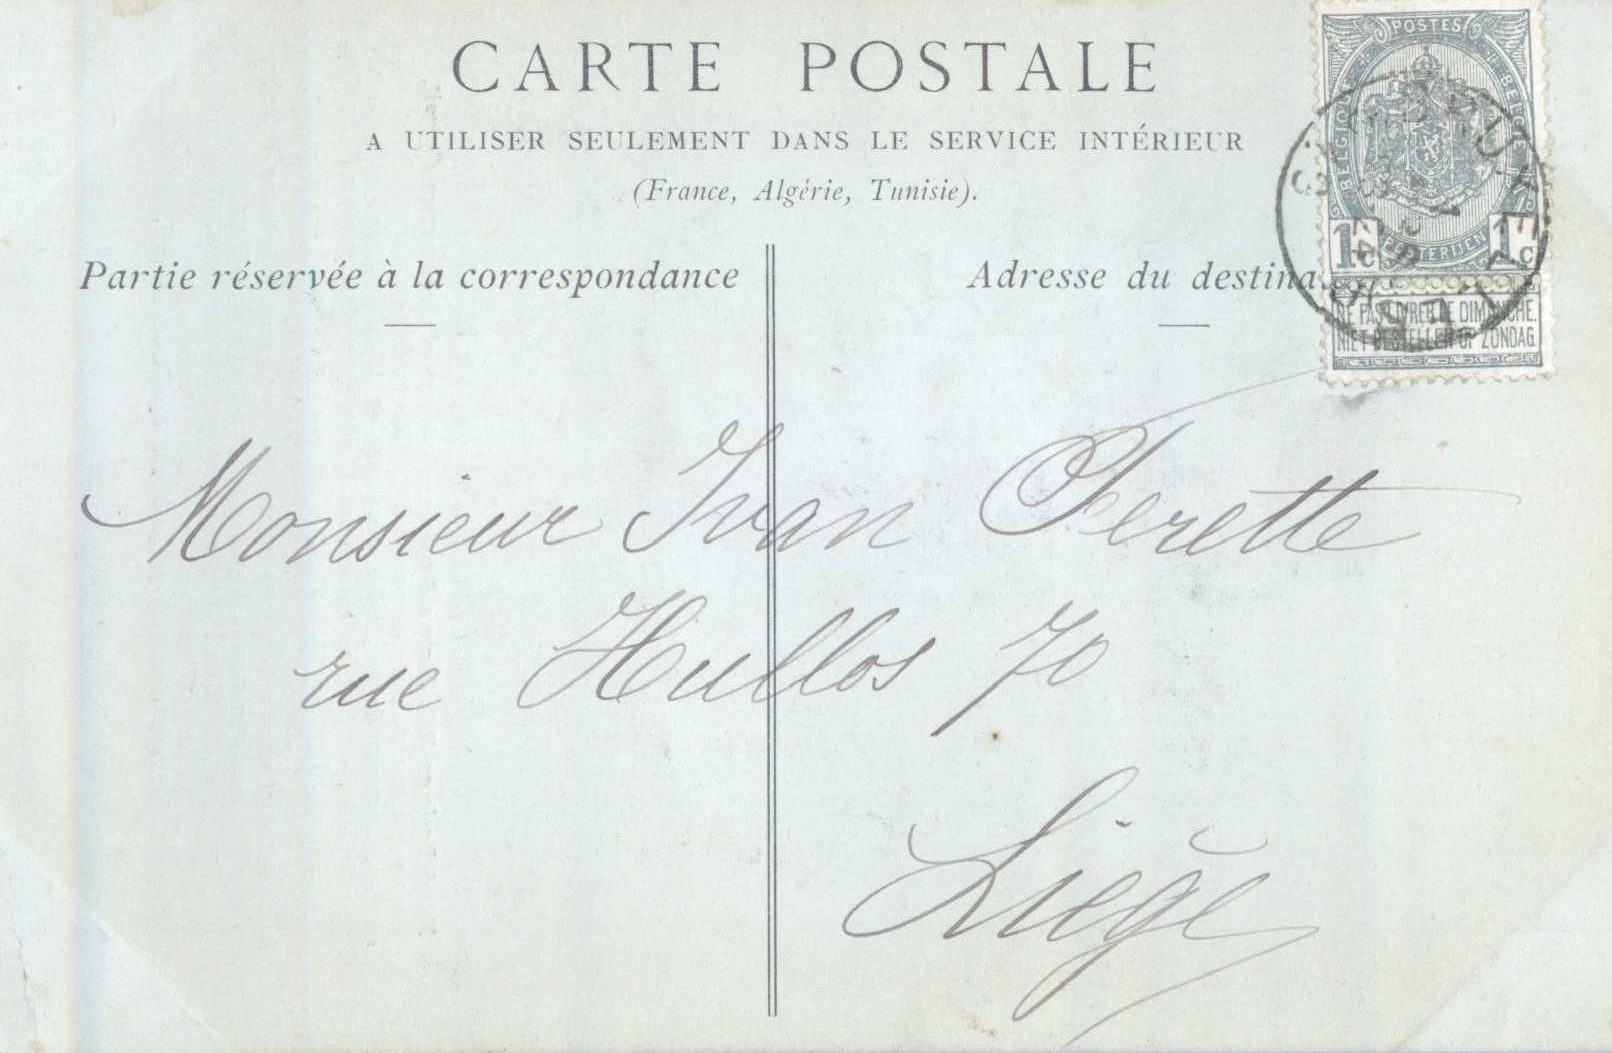 CARTE POSTALE
A UTILISER SEULEMENT DANS LE SERVICE INTÉRIEUR
(France, Algérie, Tunisie).
Partie réservée à la correspondance
Adresse du destina
POSTES
BELGIQUE BELGIË
1c 1c
NE PAS LIVRER LE DIMANCHE.
NIET BESTELLEN OP ZONDAG
Monsieur Ivan Ferette
rue Hullos 70
Liège